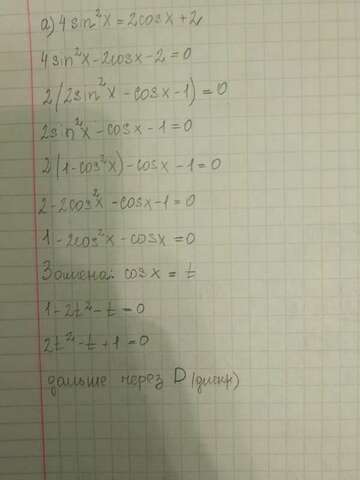 а) 4sin²x = 2cosx + 2
4sin²x - 2cosx - 2 = 0
2(2sin²x - cosx - 1) = 0
2sin²x - cosx - 1 = 0
2(1 - cos²x) - cosx - 1 = 0
2 - 2cos²x - cosx - 1 = 0
1 - 2cos²x - cosx = 0
Замена: cosx = t
1 - 2t² - t = 0
2t² - t + 1 = 0
дальше через D (дискр)